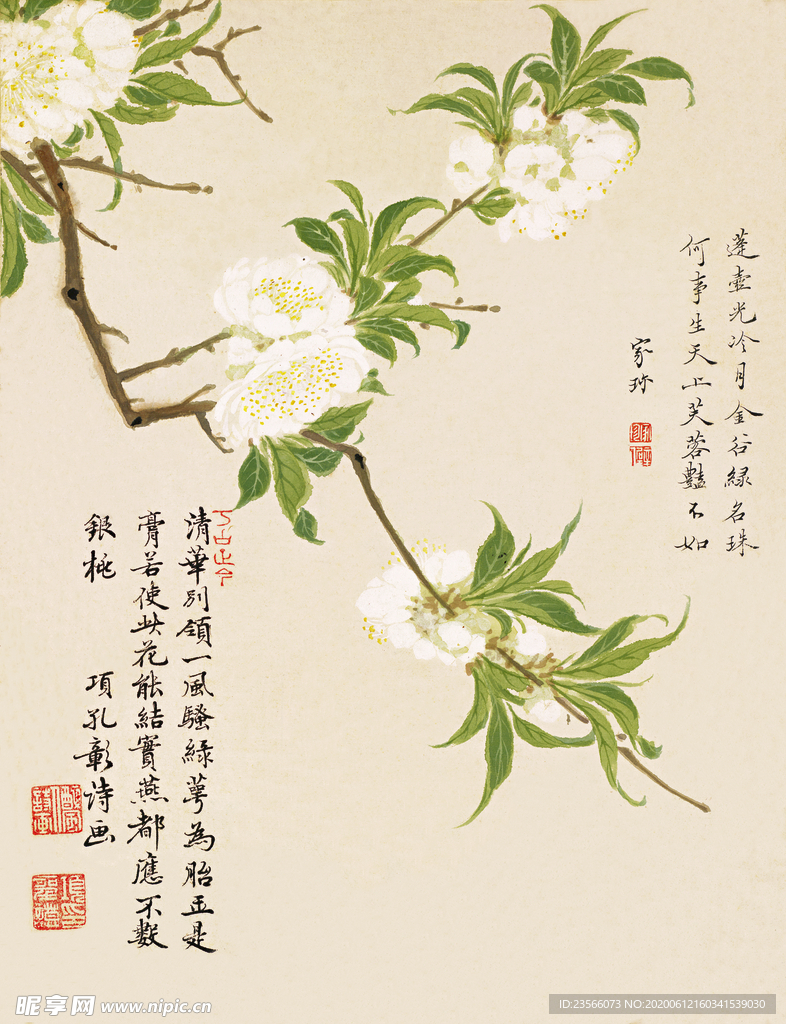 蓬壺光冷月金谷緑名珠
何事生天上芙蓉豔不如
家珎
清華別領一風騷緑萼為胎玉是
膏若使此花能結實燕都應不數
銀桃 項孔彰詩画
昵享网 www.nipic.cn
ID:23566073 NO:20200612160341539030